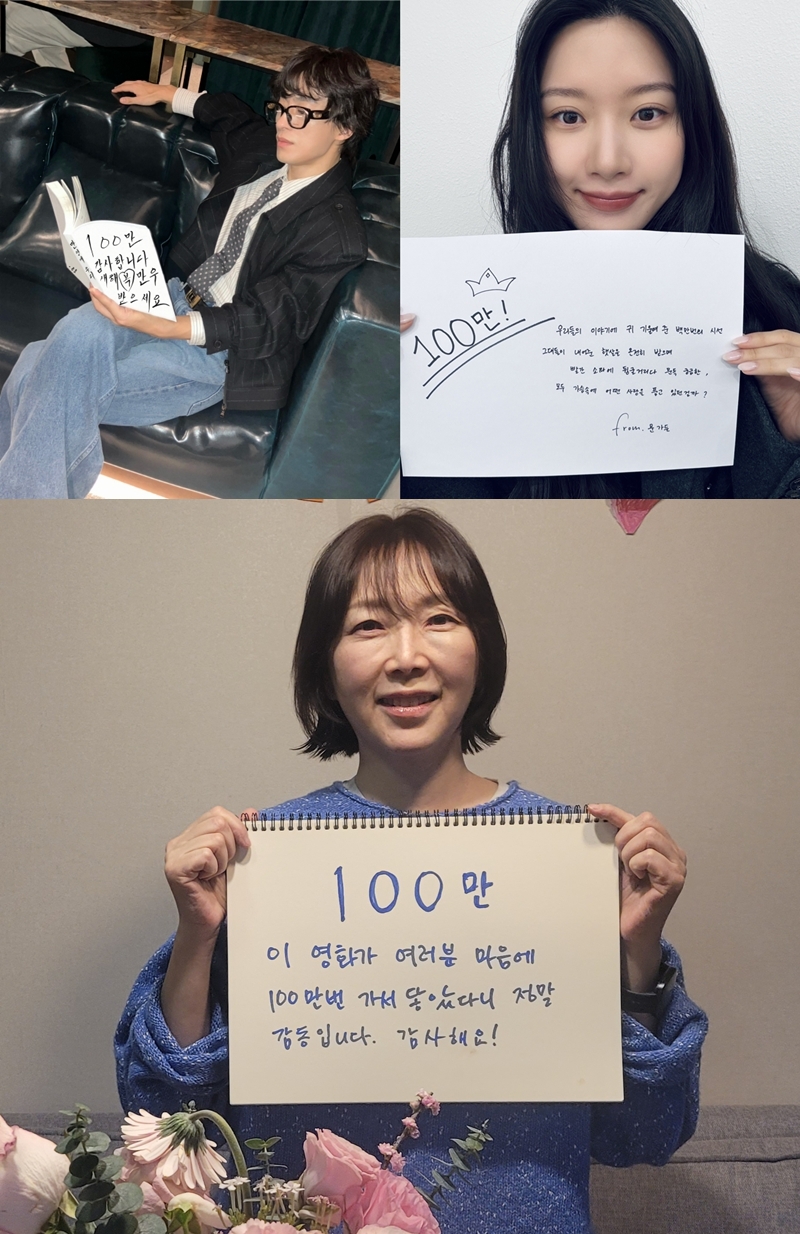 100만
감사합니다
새해 복 만우
받으세요
100만!
우리들의 이야기에 귀 기울여 준 백만번의 시선
그대들이 내어준 햇살을 온전히 받으며
빨간 소파에 뒹굴거리다 문득 궁금한,
모두 가슴속에 어떤 사랑을 품고 있던걸까?
from. 문가영
100만
이 영화가 여러분 마음에
100만번 가서 닿았다니 정말
감동입니다. 감사해요!